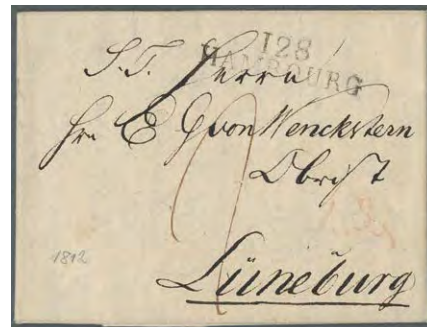 128
HAMBOURG
S. T. Herrn
Hr. E G von Wenckstern
Obrist
Lüneburg
1812